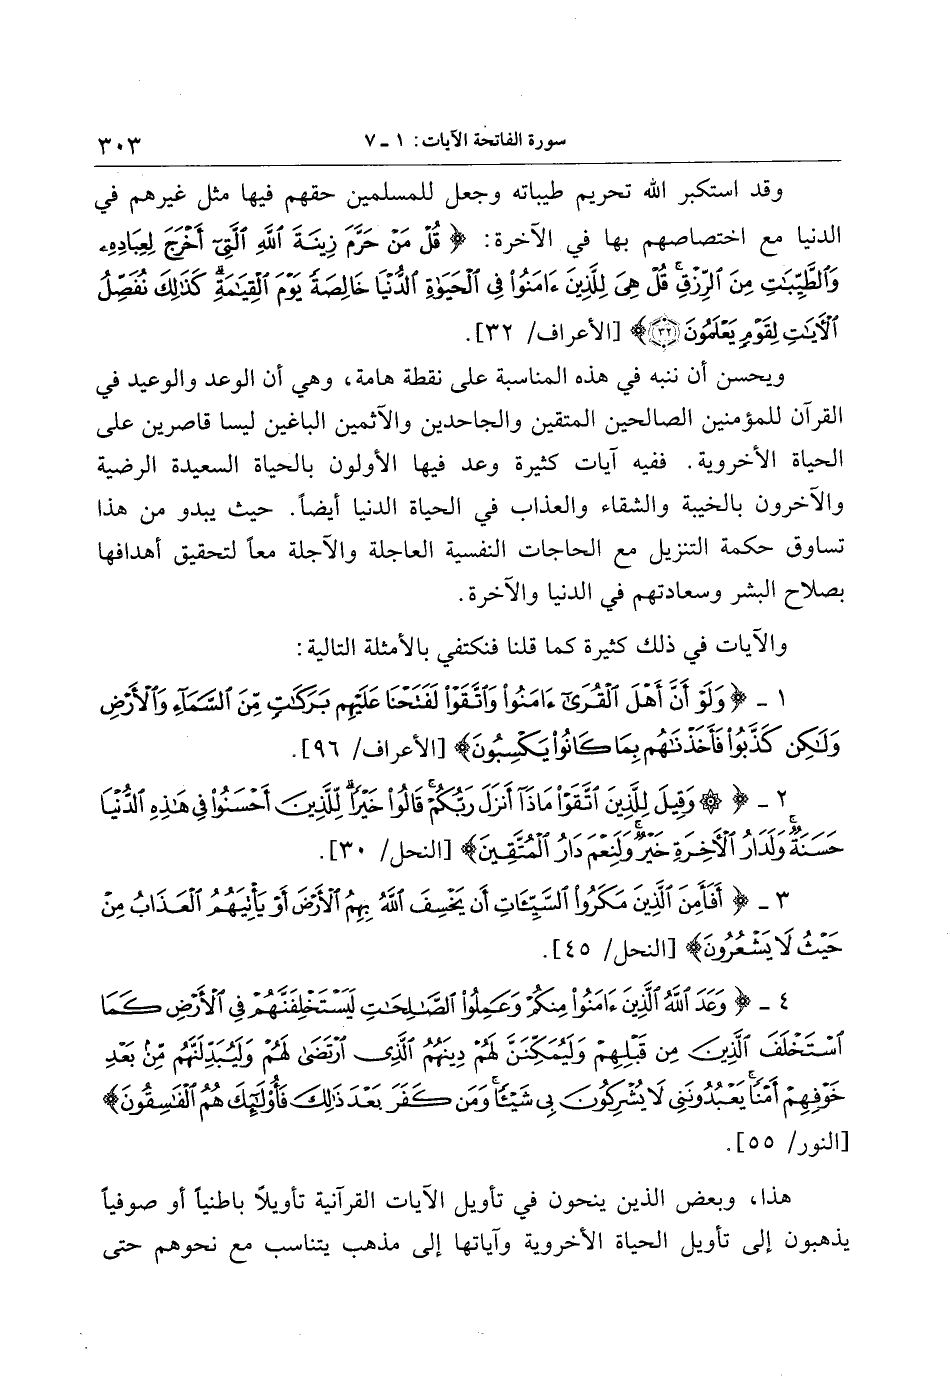 سورة الفاتحة الآيات: ١ ـ ٧ ٣٠٣
وقد استكبر الله تحريم طيباته وجعل للمسلمين حقهم فيها مثل غيرهم في
الدنيا مع اختصاصهم بها في الآخرة: ﴿ قُلْ مَنْ حَرَّمَ زِينَةَ اللَّهِ الَّتِيَ أَخْرَجَ لِعِبَادِهِۦ
وَالطَّيِّبَاتِ مِنَ الرِّزْقِۚ قُلْ هِىَ لِلَّذِينَ ءَامَنُوا۟ فِى الْحَيَوٰةِ الدُّنْيَا خَالِصَةً يَوْمَ الْقِيَٰمَةِۗ كَذَٰلِكَ نُفَصِّلُ
الْأَيَٰتِ لِقَوْمٍ يَعْلَمُونَ ٣٢﴾ [الأعراف/ ٣٢].
ويحسن أن ننبه في هذه المناسبة على نقطة هامة، وهي أن الوعد والوعيد في
القرآن للمؤمنين الصالحين المتقين والجاحدين والآثمين الباغين ليسا قاصرين على
الحياة الأخروية. ففيه آيات كثيرة وعد فيها الأولون بالحياة السعيدة الرضية
والآخرون بالخيبة والشقاء والعذاب في الحياة الدنيا أيضاً. حيث يبدو من هذا
تساوق حكمة التنزيل مع الحاجات النفسية العاجلة والآجلة معاً لتحقيق أهدافها
بصلاح البشر وسعادتهم في الدنيا والآخرة.
والآيات في ذلك كثيرة كما قلنا فنكتفي بالأمثلة التالية:
١ ـ ﴿ وَلَوْ أَنَّ أَهْلَ الْقُرَىٰٓ ءَامَنُوا۟ وَاتَّقَوْا۟ لَفَتَحْنَا عَلَيْهِم بَرَكَٰتٍ مِّنَ السَّمَآءِ وَالْأَرْضِ
وَلَٰكِن كَذَّبُوا۟ فَأَخَذْنَٰهُم بِمَا كَانُوا۟ يَكْسِبُونَ﴾ [الأعراف/ ٩٦].
٢ ـ ﴿ ۞ وَقِيلَ لِلَّذِينَ اتَّقَوْا۟ مَاذَآ أَنزَلَ رَبُّكُمْۚ قَالُوا۟ خَيْرًاۗ لِّلَّذِينَ أَحْسَنُوا۟ فِى هَٰذِهِ الدُّنْيَا
حَسَنَةٌۚ وَلَدَارُ الْأَخِرَةِ خَيْرٌۚ وَلَنِعْمَ دَارُ الْمُتَّقِينَ﴾ [النحل/ ٣٠].
٣ ـ ﴿ أَفَأَمِنَ الَّذِينَ مَكَرُوا۟ السَّيِّـَٔاتِ أَن يَخْسِفَ اللَّهُ بِهِمُ الْأَرْضَ أَوْ يَأْتِيَهُمُ الْعَذَابُ مِنْ
حَيْثُ لَا يَشْعُرُونَ﴾ [النحل/ ٤٥].
٤ ـ ﴿ وَعَدَ اللَّهُ الَّذِينَ ءَامَنُوا۟ مِنكُمْ وَعَمِلُوا۟ الصَّٰلِحَٰتِ لَيَسْتَخْلِفَنَّهُمْ فِى الْأَرْضِ كَمَا
اسْتَخْلَفَ الَّذِينَ مِن قَبْلِهِمْ وَلَيُمَكِّنَنَّ لَهُمْ دِينَهُمُ الَّذِى ارْتَضَىٰ لَهُمْ وَلَيُبَدِّلَنَّهُم مِّنۢ بَعْدِ
خَوْفِهِمْ أَمْنًاۚ يَعْبُدُونَنِى لَا يُشْرِكُونَ بِى شَيْـًٔاۚ وَمَن كَفَرَ بَعْدَ ذَٰلِكَ فَأُو۟لَٰٓئِكَ هُمُ الْفَٰسِقُونَ﴾
[النور/ ٥٥].
هذا، وبعض الذين ينحون في تأويل الآيات القرآنية تأويلاً باطنياً أو صوفياً
يذهبون إلى تأويل الحياة الأخروية وآياتها إلى مذهب يتناسب مع نحوهم حتى